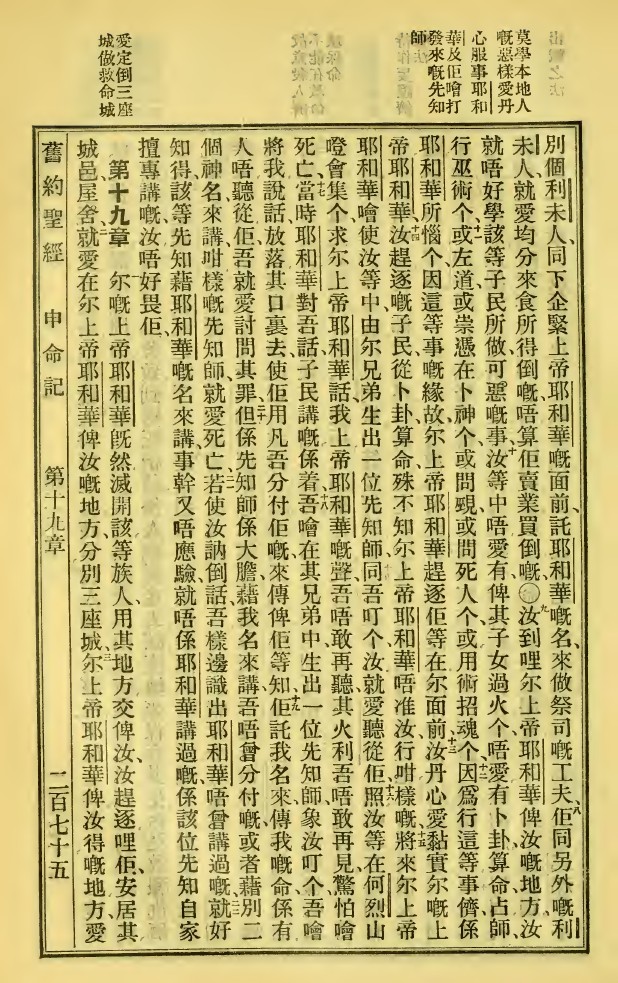 莫學本地人
嘅惡樣愛丹
心服事耶和
華及佢噲打
發來嘅先知
師
愛定倒三座
城做救命城
別個利未人、同下企緊上帝耶和華嘅面前、託耶和華嘅名來做祭司嘅工夫、八佢同另外嘅利
未人、就愛均分來食所得倒嘅、唔算佢賣業買倒嘅、〇九汝到哩尔上帝耶和華俾汝嘅地方、汝
就唔好學該等子民所做可惡嘅事、十汝等中唔愛有俾其子女過火个、唔愛有卜卦算命占師、
行巫術个、十一或左道或崇憑在卜神个、或問覡或問死人个、或用術招魂个、十二因爲行這等事儕係
耶和華所惱个、因這等事嘅緣故、尔上帝耶和華趕逐佢等在尔面前、十三汝丹心愛黏實尔嘅上
帝耶和華、十四汝趕逐嘅子民從卜卦算命、殊不知尔上帝耶和華唔准汝行咁樣嘅、十五將來尔上帝
耶和華噲使汝等中由尔兄弟生出一位先知師、同吾叮个、汝就愛聽從佢、十六照汝等在何烈山
嶝會集个求尔上帝耶和華話、我上帝耶和華嘅聲吾唔敢再聽、其火利吾唔敢再見、驚怕噲
死亡、十七當時耶和華對吾話、子民講嘅係着、十八吾噲在其兄弟中生出一位先知師、象汝叮个、吾噲
將我說話、放落其口裏去、使佢用凡吾分付佢嘅來傳俾佢等知、十九佢託我名來傳我嘅命、係有
人唔聽從佢、吾就愛討問其罪、二十但係先知師係大膽藉我名來講吾唔曾分付嘅、或者藉別二
個神名來講咁樣嘅先知師、就愛死亡、二一若使汝訥倒話、吾樣邊識出耶和華唔曾講過嘅、二二就好
知得、該等先知藉耶和華嘅名來講事幹、又唔應驗、就唔係耶和華講過嘅、係該位先知自家
擅專講嘅、汝唔好畏佢、
第十九章　一尔嘅上帝耶和華旣然滅開該等族人、用其地方交俾汝、汝趕逐哩佢、安居其
城邑屋舍、二就愛在尔上帝耶和華俾汝嘅地方、分別三座城、三尔上帝耶和華俾汝得嘅地方、愛
舊約聖經　申命記　第十九章　二百七十五